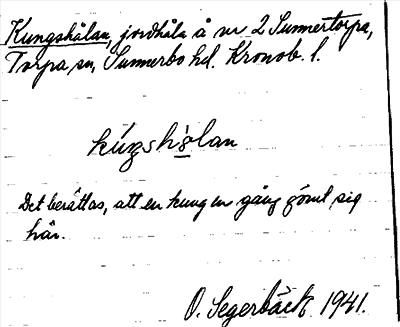 Kungshålan, jordhåla å nr 2 Sunnertorpa,
Torpa sn, Sunnerbo hd. Kronob. l.
kúŋsho̱lan
Det berättas, att en kung en gång gömt sig
här.
O. Segerbäck 1941.